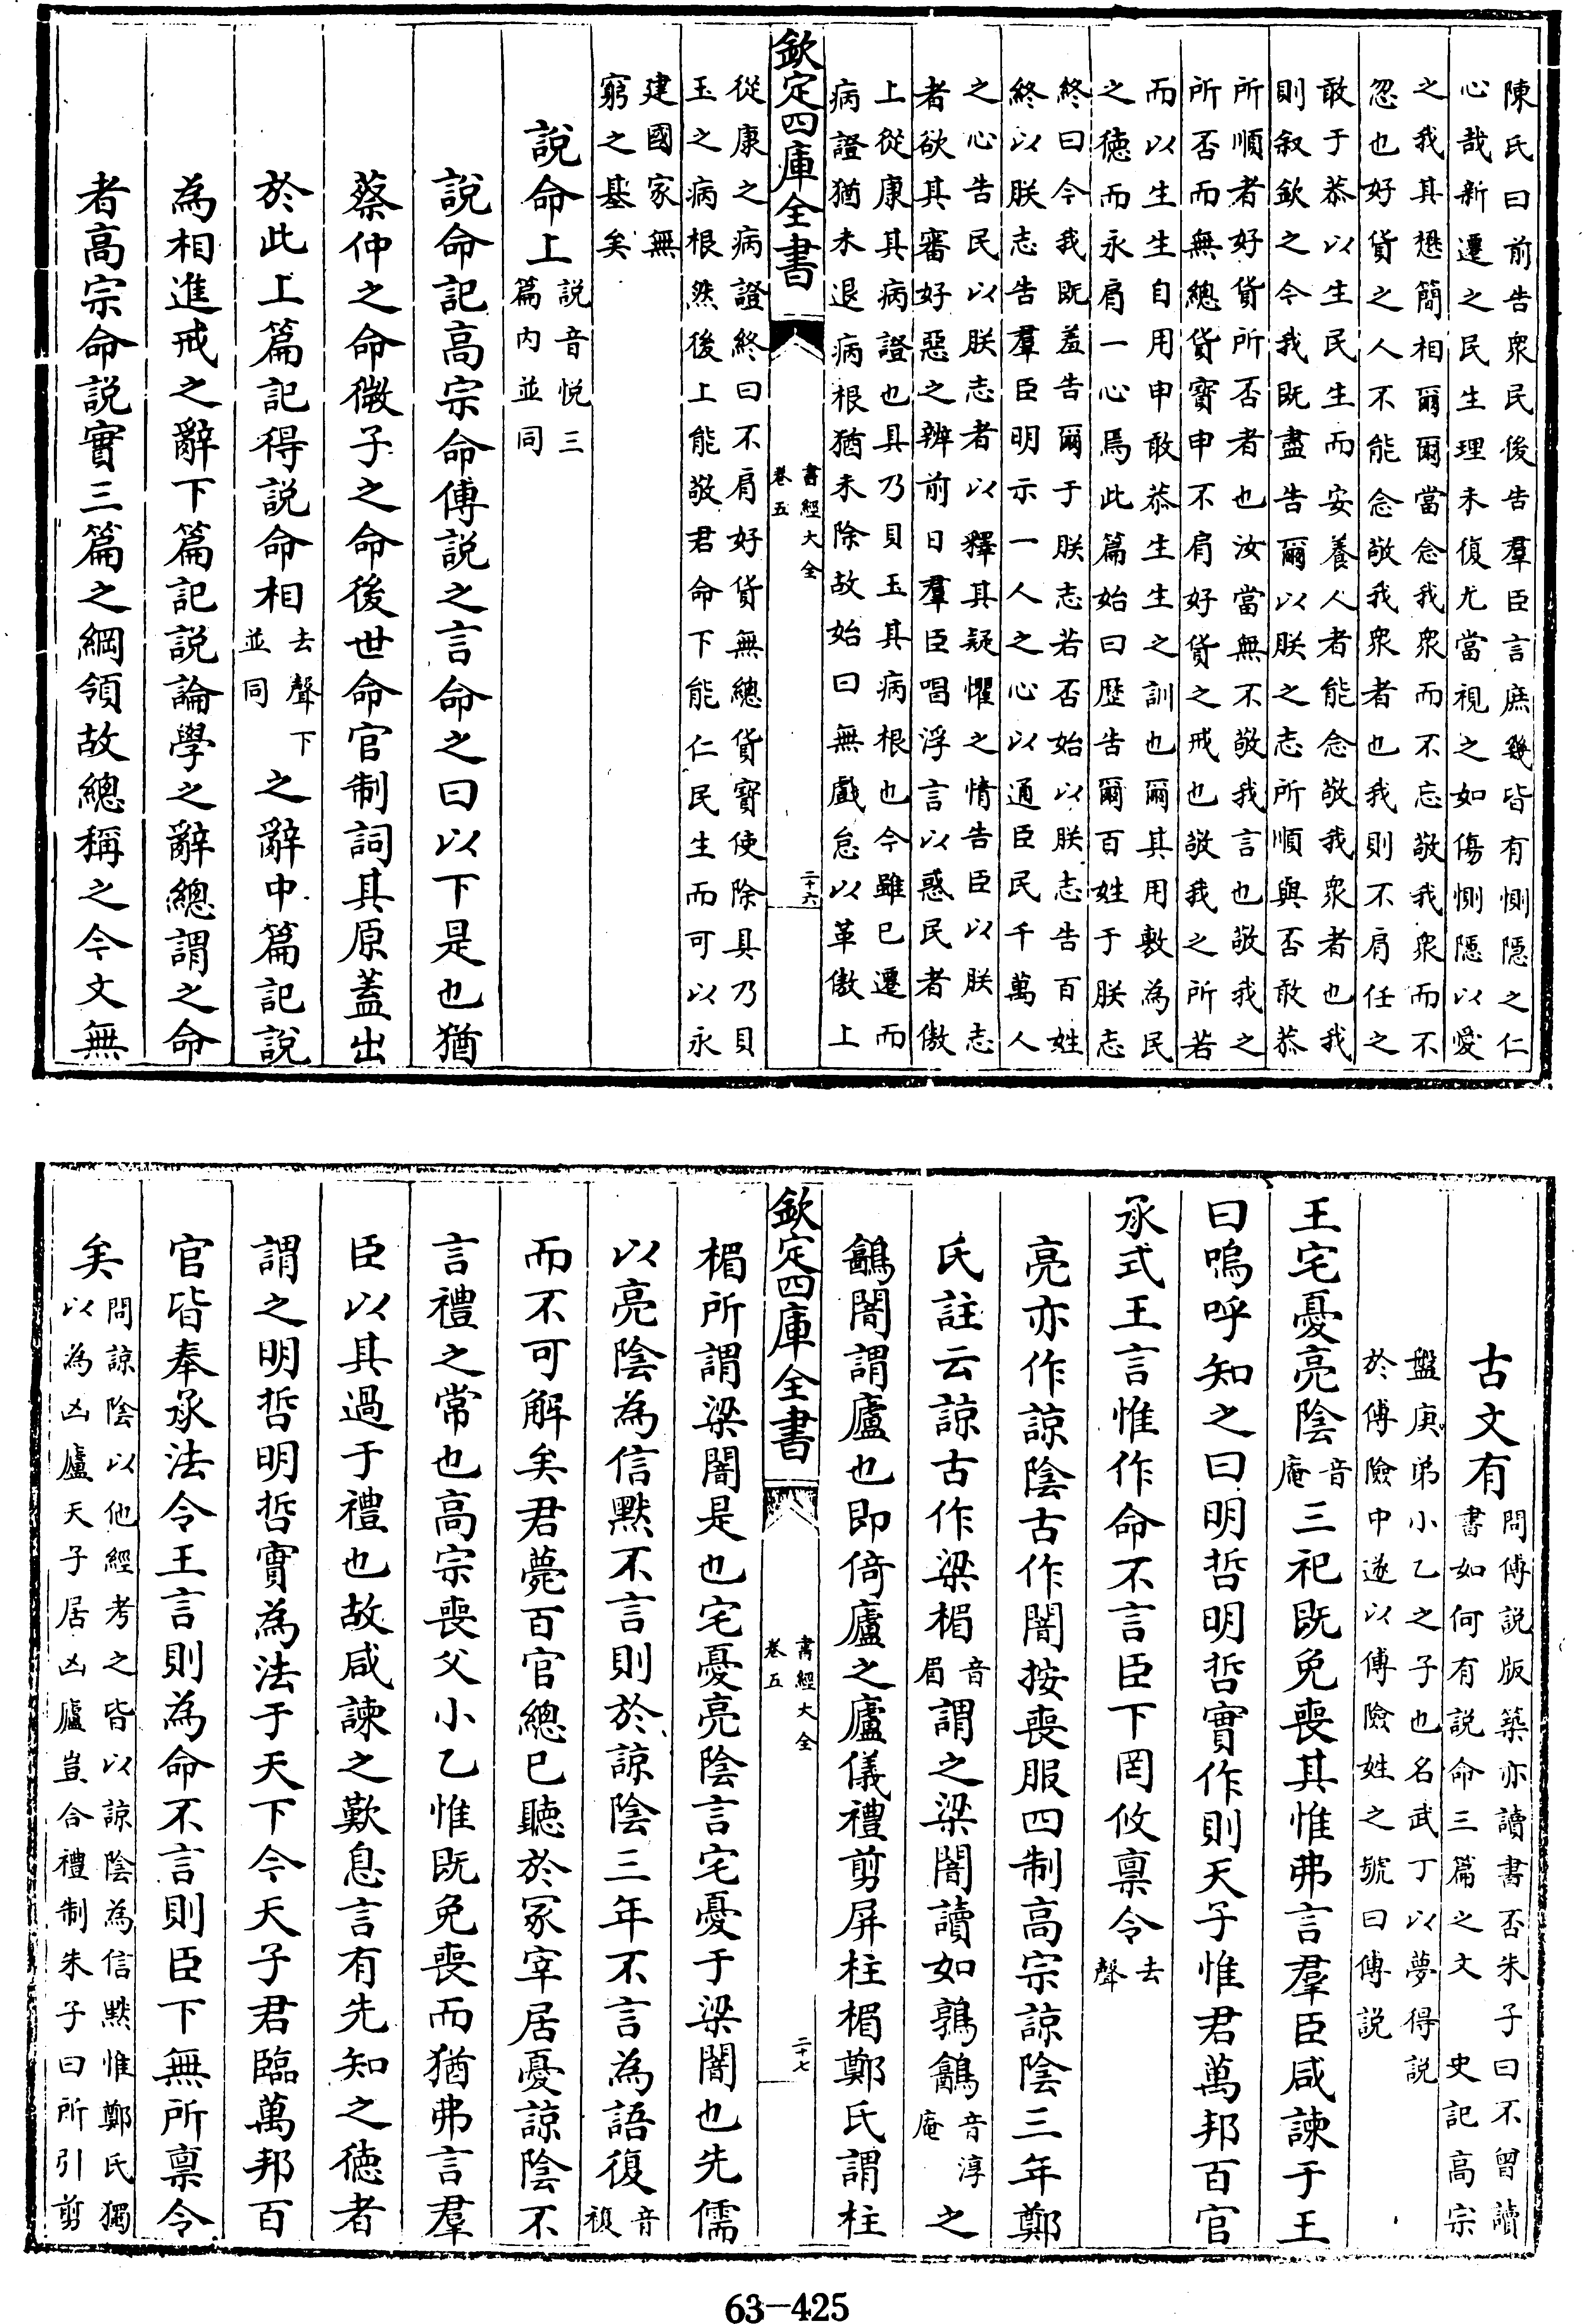 陳氏曰前告衆民後告羣臣言庶幾皆有惻隱之仁
心哉新遷之民生理未復尤當視之如傷惻隱以愛
之我其懋簡相爾爾當念我衆而不忘敬我衆而不
忽也好貨之人不能念敬我衆者也我則不肩任之
敢于恭以生民生而安養人者能念敬我衆者也我
則叙欽之今我既盡告爾以朕之志所順與否敢恭
所順者好貨所否者也汝當無不敬我言也敬我之
所否而無總貨寳申不肩好貨之戒也敬我之所若
而以生生自用申敢恭生生之訓也爾其用敷為民
之德而永肩一心焉此篇始曰歴告爾百姓于朕志
終曰今我既羞告爾于朕志若否始以朕志告百姓
終以朕志告羣臣明示一人之心以通臣民千萬人
之心告民以朕志者以釋其疑懼之情告臣以朕志
者欲其審好惡之辨前日羣臣唱浮言以惑民者傲
上從康其病證也具乃貝玉其病根也今雖已遷而
病證猶未退病根猶未除故始曰無戲怠以革傲上
欽定四庫全書
書經大全
卷五
二十六
從康之病證終曰不肩好貨無總貨寳使除具乃貝
玉之病根然後上能敬君命下能仁民生而可以永
建國家無
窮之基矣
說命上說音悦三
篇内並同
說命記高宗命傅說之言命之曰以下是也猶
蔡仲之命微子之命後世命官制詞其原蓋出
於此上篇記得說命相去聲下
並同之辭中篇記說
為相進戒之辭下篇記說論學之辭總謂之命
者高宗命說實三篇之綱領故總稱之今文無
古文有問傅說版築亦讀書否朱子曰不曾讀
書如何有說命三篇之文 史記高宗
盤庚弟小乙之子也名武丁以夢得說
於傅險中遂以傅險姓之號曰傅說
王宅憂亮陰音
庵三祀既免喪其惟弗言羣臣咸諫于王
曰嗚呼知之曰明哲明哲實作則天子惟君萬邦百官
承式王言惟作命不言臣下罔攸禀令去
聲
亮亦作諒陰古作闇按喪服四制高宗諒陰三年鄭
氏註云諒古作梁楣音
眉謂之梁闇讀如鶉䳺音淳
庵之
䳺闇謂廬也即倚廬之廬儀禮剪屏柱楣鄭氏謂柱
欽定四庫全書
書經大全
卷五
二十七
楣所謂梁闇是也宅憂亮陰言宅憂于梁闇也先儒
以亮陰為信默不言則於諒陰三年不言為語復音
複
而不可解矣君薨百官總已聽於冢宰居憂諒陰不
言禮之常也高宗喪父小乙惟既免喪而猶弗言羣
臣以其過于禮也故咸諫之歎息言有先知之德者
謂之明哲明哲實為法于天下今天子君臨萬邦百
官皆奉承法令王言則為命不言則臣下無所禀令
矣問諒陰以他經考之皆以諒陰為信默惟鄭氏獨
以為凶廬天子居凶廬豈合禮制朱子曰所引剪
63-425